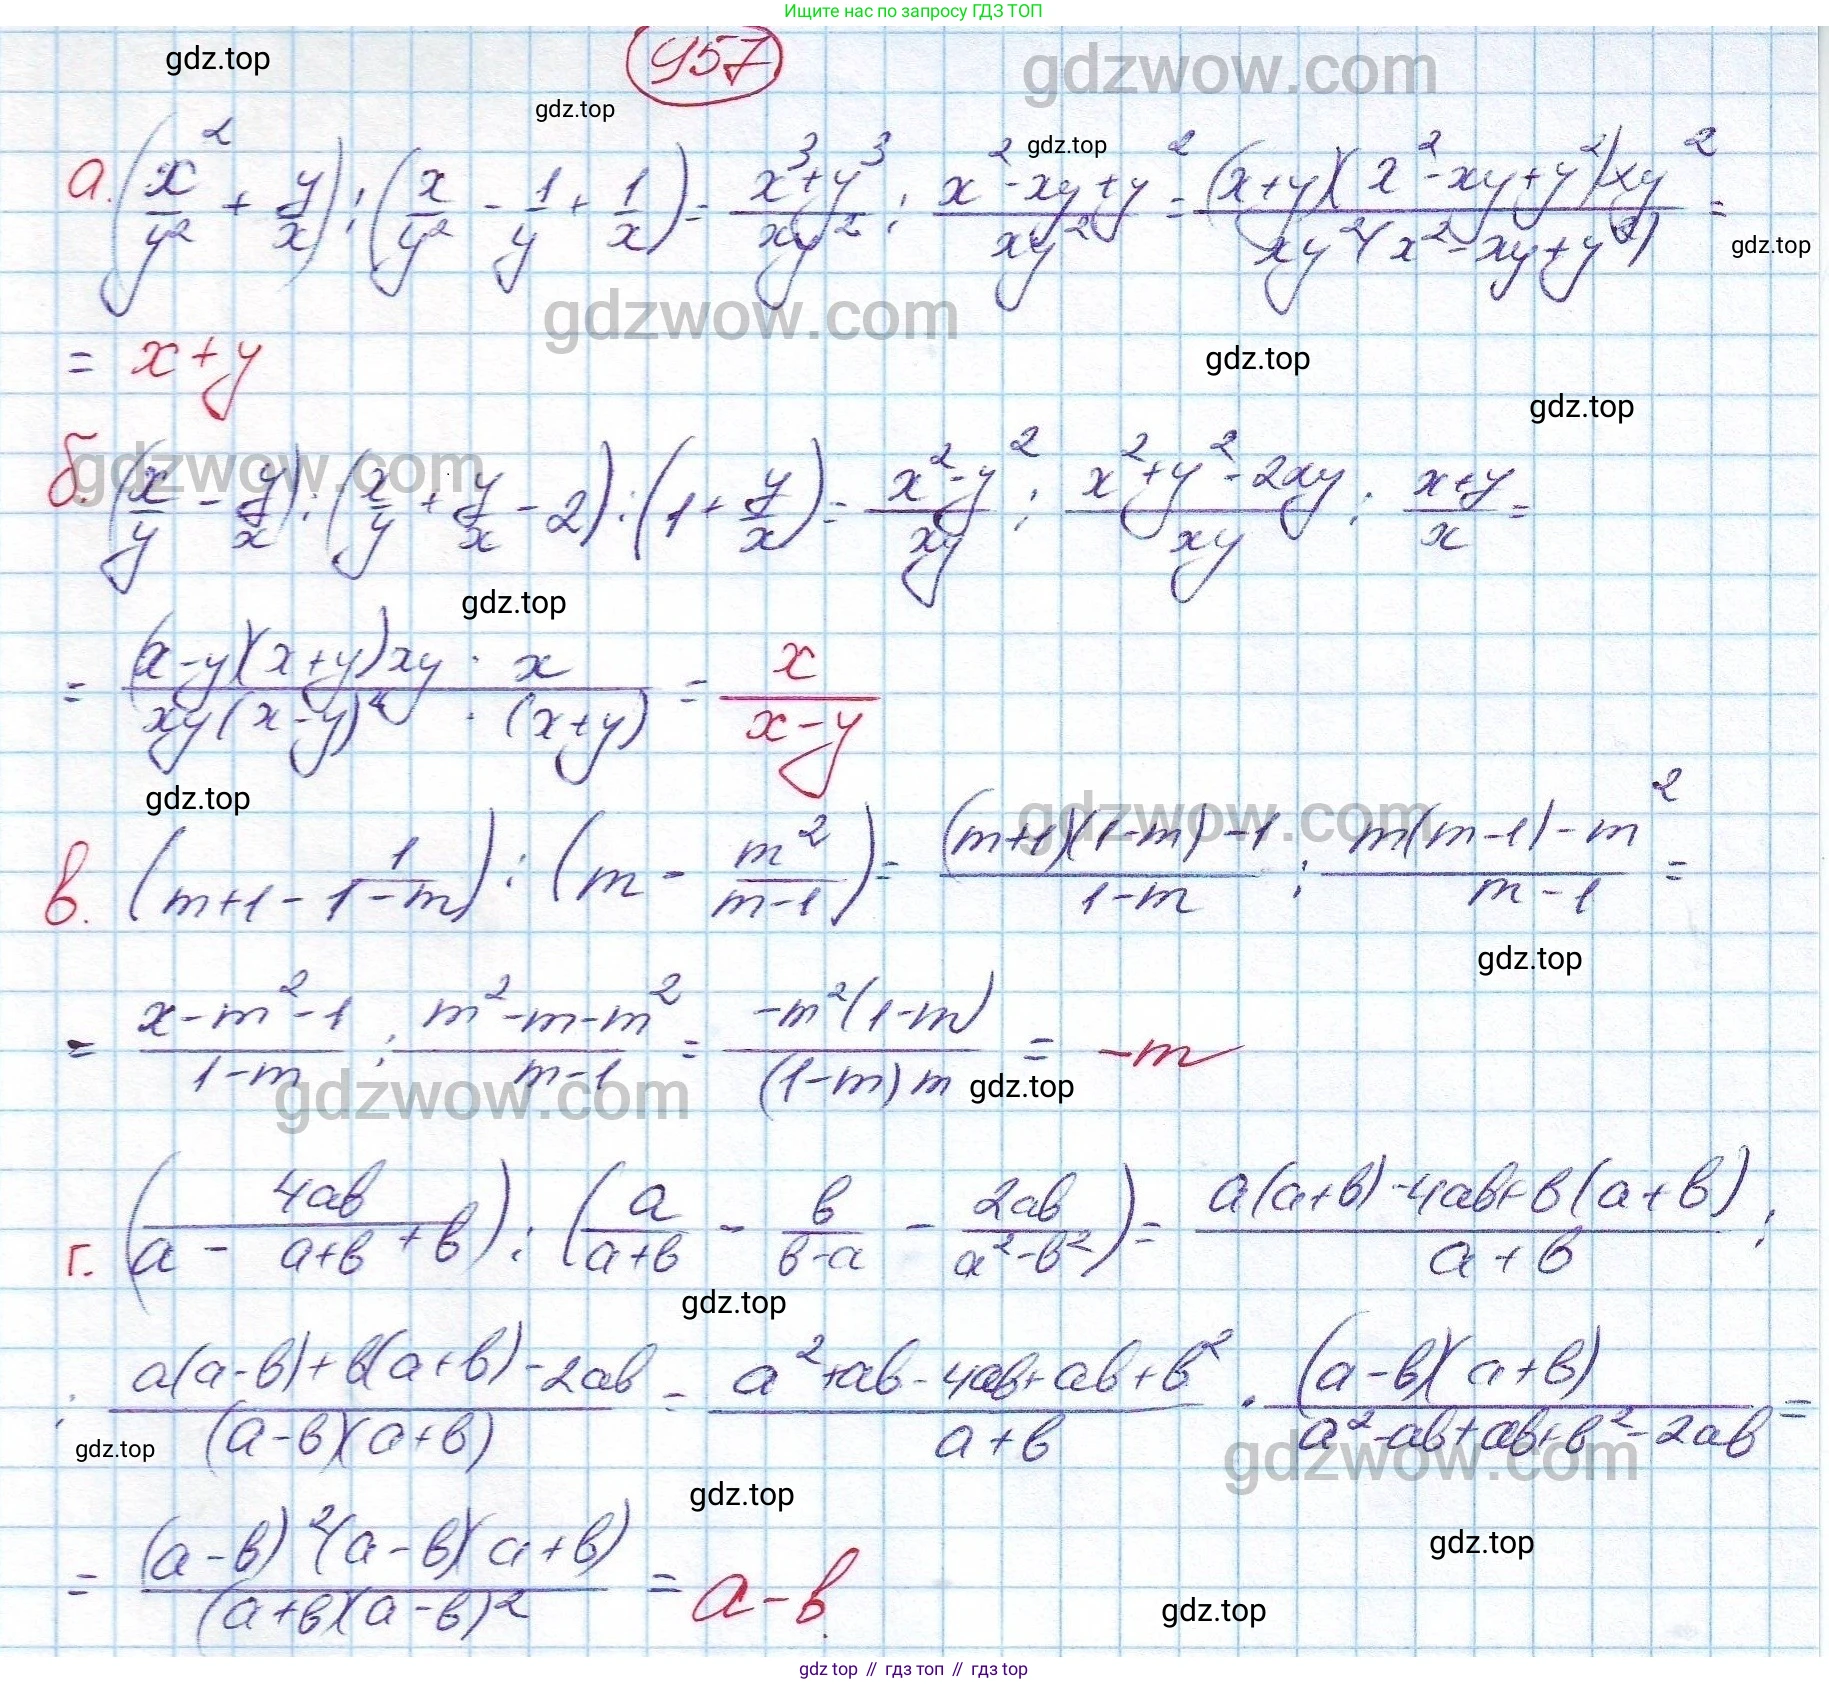 Ищите нас по запросу ГДЗ ТОП
957
gdz.top gdz.top gdzwow.com gdz.top
а. (x²/y² + y/x) : (x/y² - 1/y + 1/x) = (x³+y³)/(xy²) : (x²-xy+y²)/(xy²) = ((x+y)(x²-xy+y²)xy²)/(xy²(x²-xy+y²)) =
gdz.top
gdzwow.com
= x+y
gdz.top
gdz.top
gdzwow.com
б. (x/y - y/x) : (x/y + y/x - 2) : (1 + y/x) = (x²-y²)/(xy) : (x²+y²-2xy)/(xy) : (x+y)/x =
gdz.top
= ((x-y)(x+y)xy · x)/(xy(x-y)² · (x+y)) = x/(x-y)
gdz.top
gdzwow.com
в. (m+1 - 1/(1-m)) : (m - m²/(m-1)) = ((m+1)(1-m)-1)/(1-m) : (m(m-1)-m²)/(m-1) =
gdz.top
= (x-m²-1)/(1-m) : (m²-m-m²)/(m-1) = (-m²(1-m))/((1-m)m) = -m
gdzwow.com gdz.top
г. (a - 4ab/(a+b) + b) : (a/(a+b) - b/(b-a) - 2ab/(a²-b²)) = (a(a+b)-4ab+b(a+b))/(a+b) :
gdz.top
: (a(a-b)+b(a+b)-2ab)/((a-b)(a+b)) = (a²+ab-4ab+ab+b²)/(a+b) · ((a-b)(a+b))/(a²-ab+ab+b²-2ab) =
gdz.top
gdzwow.com
gdz.top
= ((a-b)²(a-b)(a+b))/((a+b)(a-b)²) = a-b.
gdz.top
gdz.top
gdz top // гдз топ // гдз top